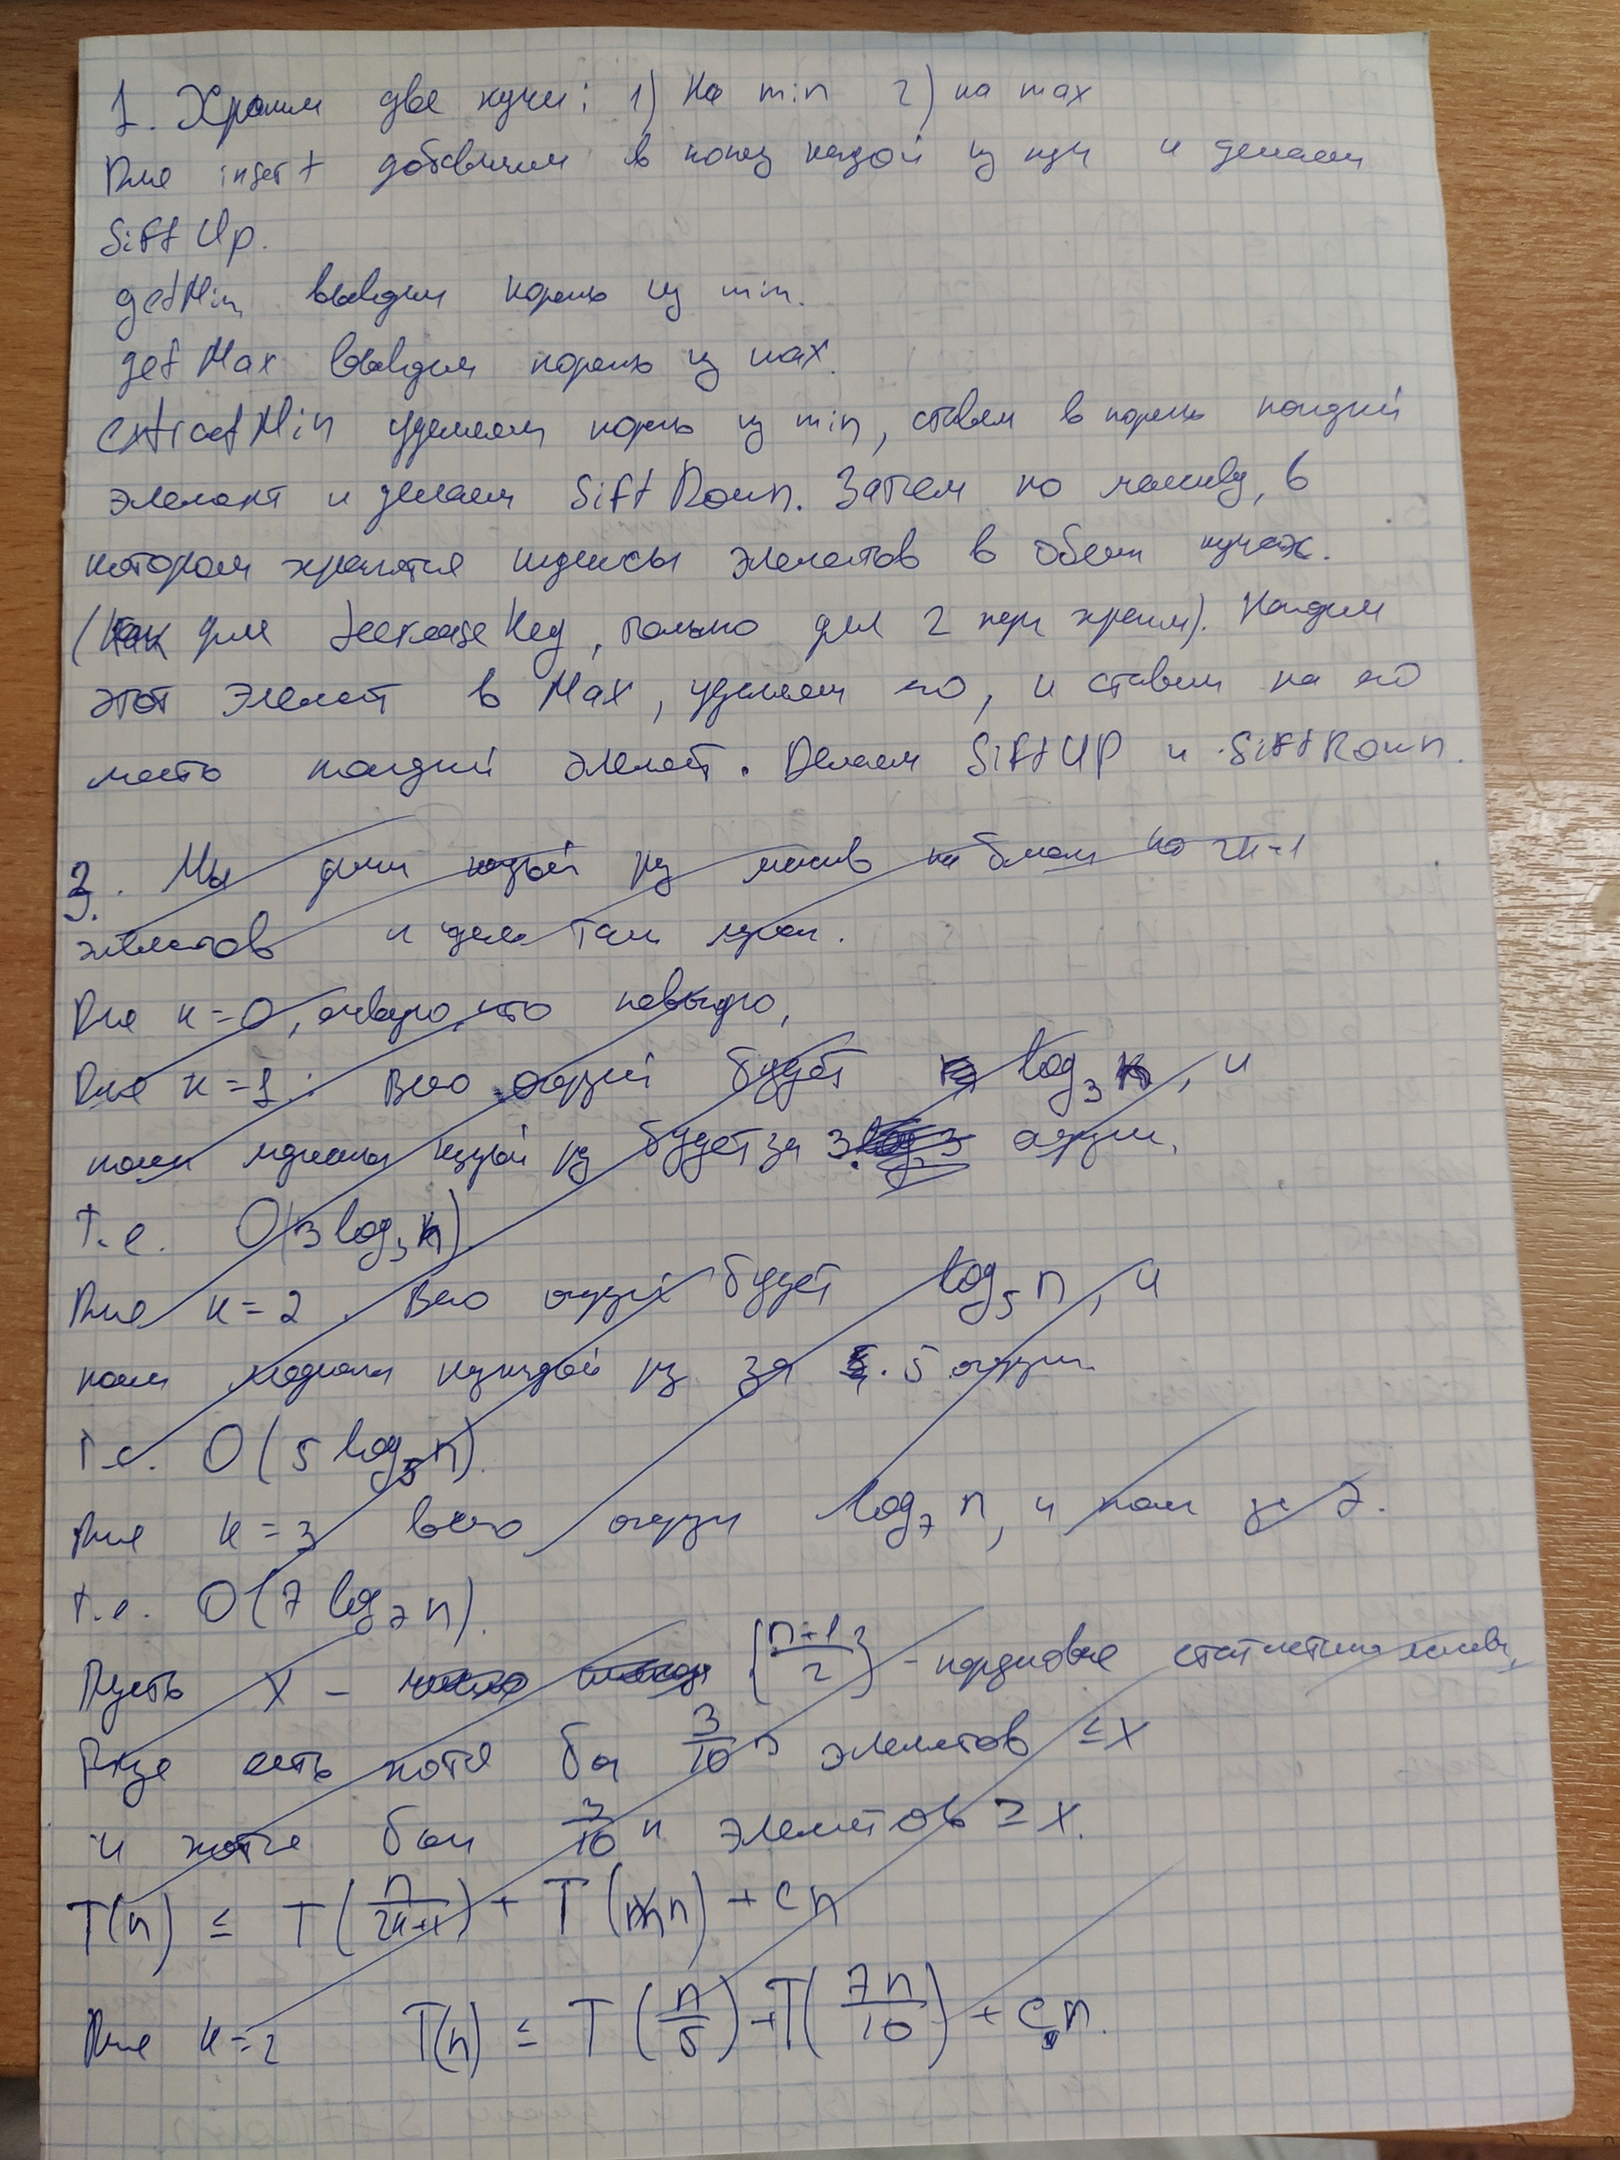 1. Храним две кучи: 1) На min 2) на max
Для insert добавляем в конец каждой из куч и делаем
Sift Up.
getMin выводим корень из min.
getMax выводим корень из max.
extractMin удаляем корень из min, ставим в корень последний
элемент и делаем Sift Down. Затем по массиву, в
котором хранятся индексы элементов в обеих кучах.
(Как для decreaseKey, только для 2 куч храним). Находим
этот элемент в Max, удаляем его, и ставим на его
место последний элемент. Делаем SiftUP и SiftDown.
3. Мы делим массив на блоки по 2k+1
элементов и там
Для k=0, очевидно, что
Для k=1: Всего будет log₃ n, и
медиана будет за 3
т.е. O(3 log₃ n)
Для k=2. Всего будет log₅ n, и
медиана за 5
т.е. O(5 log₅ n).
Для k=3 всего log₇ n, и за 7.
т.е. O(7 log₇ n).
Пусть x – {n+1/2} - порядковая статистика
есть хотя бы 3/10 n элементов ≤ x
и хотя бы 3/10 n элементов ≥ x.
T(n) ≤ T(n/2k+1) + T( n) + cn
Для k=2 T(n) ≤ T(n/5) + T(7n/10) + c n.